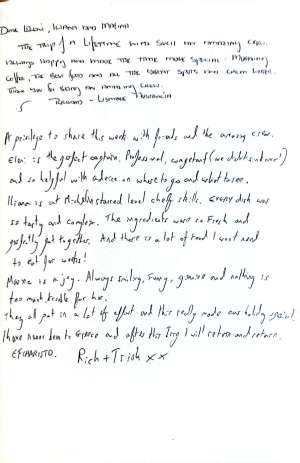 The Trip of A Lifetime with such an amazing crew.
Always happy and made the time more special. Morning
coffee, the best food and all the great spots and calm
Thank you for being an amazing crew.
A privilege to share this week with friends and the amazing crew.
Eloi is the perfect captain. Professional, competent (no doubts in
and so helpful with advice on where to go and what to see.
Iliana is at Michelin starred level chef skills. Every dish was
so tasty and complex. The ingredients were so fresh and
perfectly put together. And there is a lot of food I wont need
to eat for weeks!
is a joy. Always smiling, funny, genuine and nothing is
too much trouble for her.
They all put in a lot of effort and this really made our holiday special.
I have never been to Greece and after this Trip I will return and return.
EFCHARISTO. Rich + Trish xx